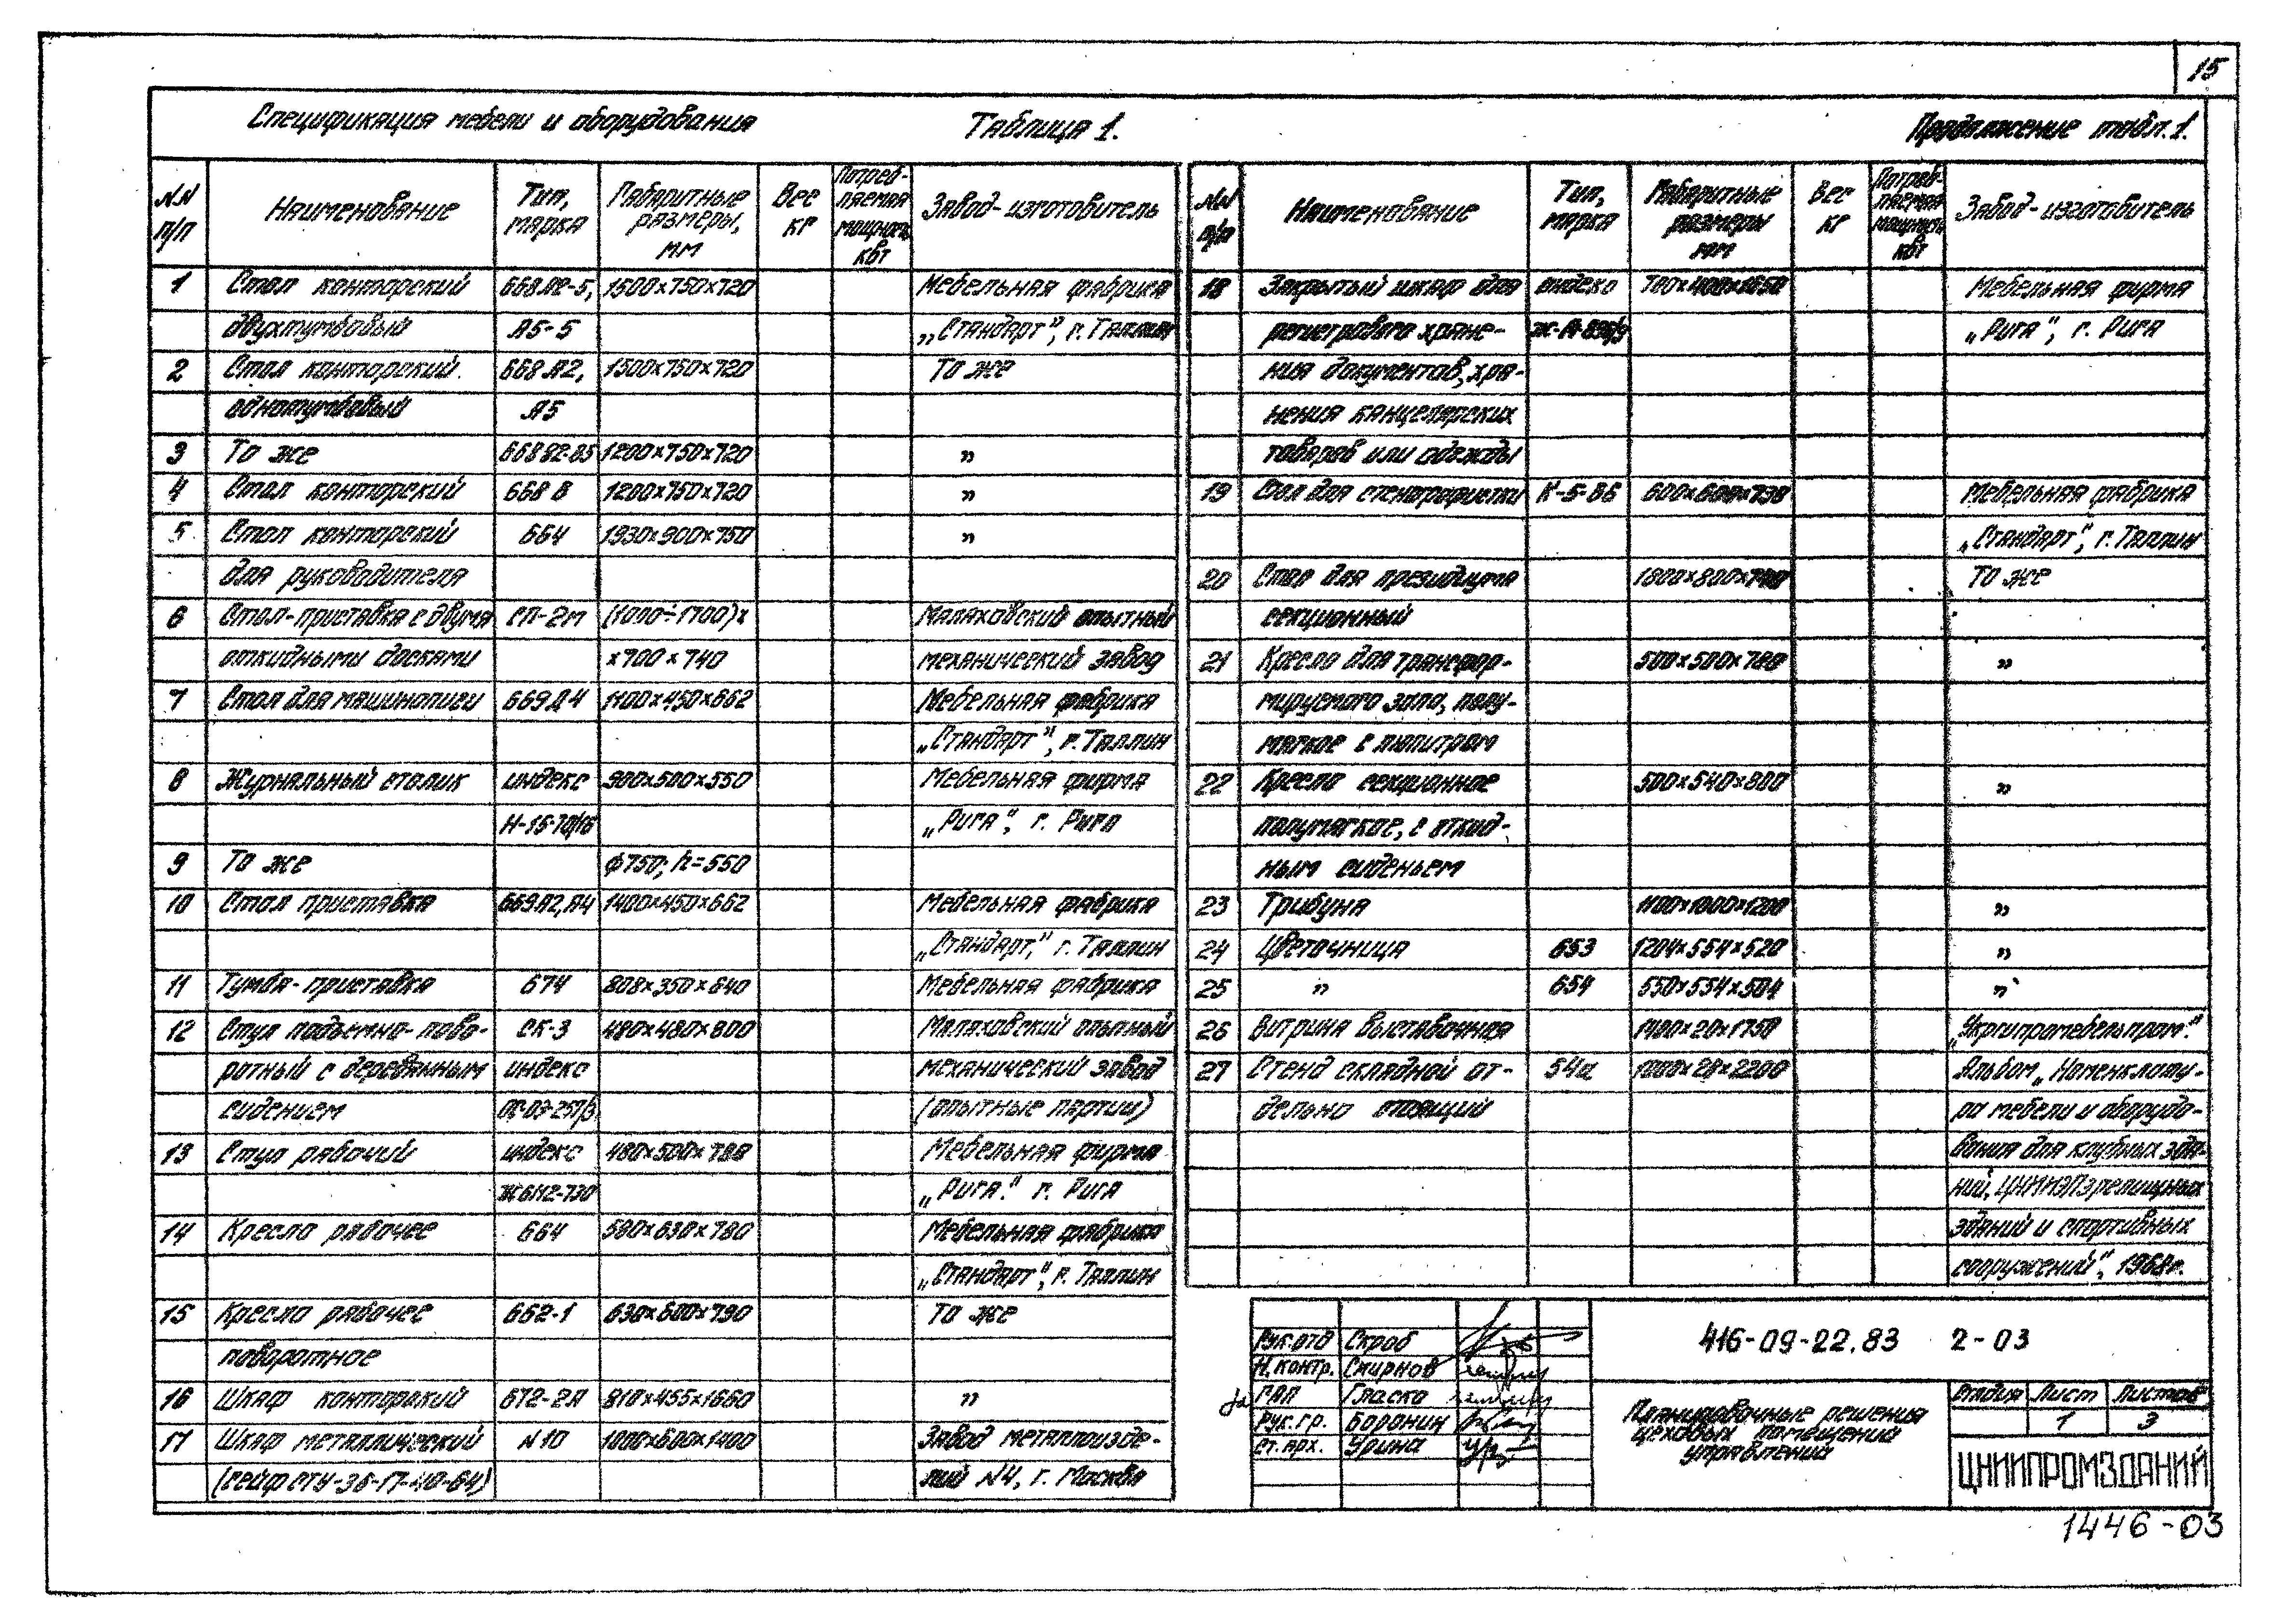 15
Спецификация мебели и оборудования Таблица 1. Продолжение табл. 1.
NN п/п Наименование Тип, марка Габаритные размеры, мм Вес кг Потреб- ляемая мощность квт Завод-изготовитель
1 Стол конторский 668.А2-5, 1500×750×720 Мебельная фабрика
двухтумбовый А5-5 „Стандарт", г. Таллин
2 Стол конторский 668.А2, 1500×750×720 То же
однотумбовый А5
3 То же 1200×750×720 "
4 Стол конторский 668 В 1200×750×720 "
5 Стол конторский 664 1930×900×750 "
для руководителя
6 Стол-приставка с двумя СП-2м (1000÷1700)×
откидными досками ×700×740
Малаховский опытный
механический завод
7 Стол для машинописи 669Д4 1100×450×662 Мебельная фабрика
„Стандарт", г. Таллин
8 Журнальный столик индекс 900×500×550 Мебельная фирма
Н-15-70/16 „Рига", г. Рига
9 То же ф750; h=550
10 Стол приставка 669.А2,А4 1400×450×662 Мебельная фабрика
„Стандарт," г. Таллин
11 Тумба-приставка 674 808×350×640 Мебельная фабрика
12 Стул подъемно-пово- СК-3 480×480×800 Малаховский опытный
ротный с деревянным индекс механический завод
сидением (опытные партии)
13 Стул рабочий индекс 480×500×788 Мебельная фирма
„Рига." г. Рига
14 Кресло рабочее 664 580×630×780 Мебельная фабрика
„Стандарт", г. Таллин
15 Кресло рабочее 662-1 630×600×790 То же
поворотное
16 Шкаф конторский 672-2А 810×455×1660 "
17 Шкаф металлический N10 1000×600×1400 Завод металлоизде-
(сейф СТУ-36-17-40-64) лий N4, г. Москва
NN п/п Наименование Тип, марка Габаритные размеры мм Вес кг Потреб- ляемая мощность квт Завод-изготовитель
18 Закрытый шкаф для Мебельная фирма
регистрового хране- „Рига", г. Рига
ния документов, хра-
нения канцелярских
товаров или одежды
19 Стол для стенографистки К-5-86 600×600×738 Мебельная фабрика
„Стандарт", г. Таллин
20 Стол для президиума То же
секционный
21 Кресло для трансфор- 500×500×780 "
мируемого зала, полу-
мягкое с пюпитром
22 Кресло секционное 500×540×800 "
полумягкое, с откид-
ным сиденьем
23 Трибуна 1100×1000×1200 "
24 Цветочница 653 1204×554×520 "
25 " 654 550×554×504 "
26 Витрина выставочная 1400×20×1750 „Укргипромебельпром".
27 Стенд складной от- 54а 1000×28×2200 Альбом „Номенклату-
дельно стоящий ра мебели и оборудо-
вания для клубных зда-
ний, ЦНИИЭП зрелищных
зданий и спортивных
сооружений", 1968г.
Рук.отд Скроб
Н.контр. Смирнов
ГАП Гласко
Рук.гр. Боронин
Ст.арх. Урина
416-09-22.83 2-03
Планировочные решения
цеховых помещений
управлений
Стадия Лист Листов
1 3
ЦНИИПРОМЗДАНИЙ
1446-03